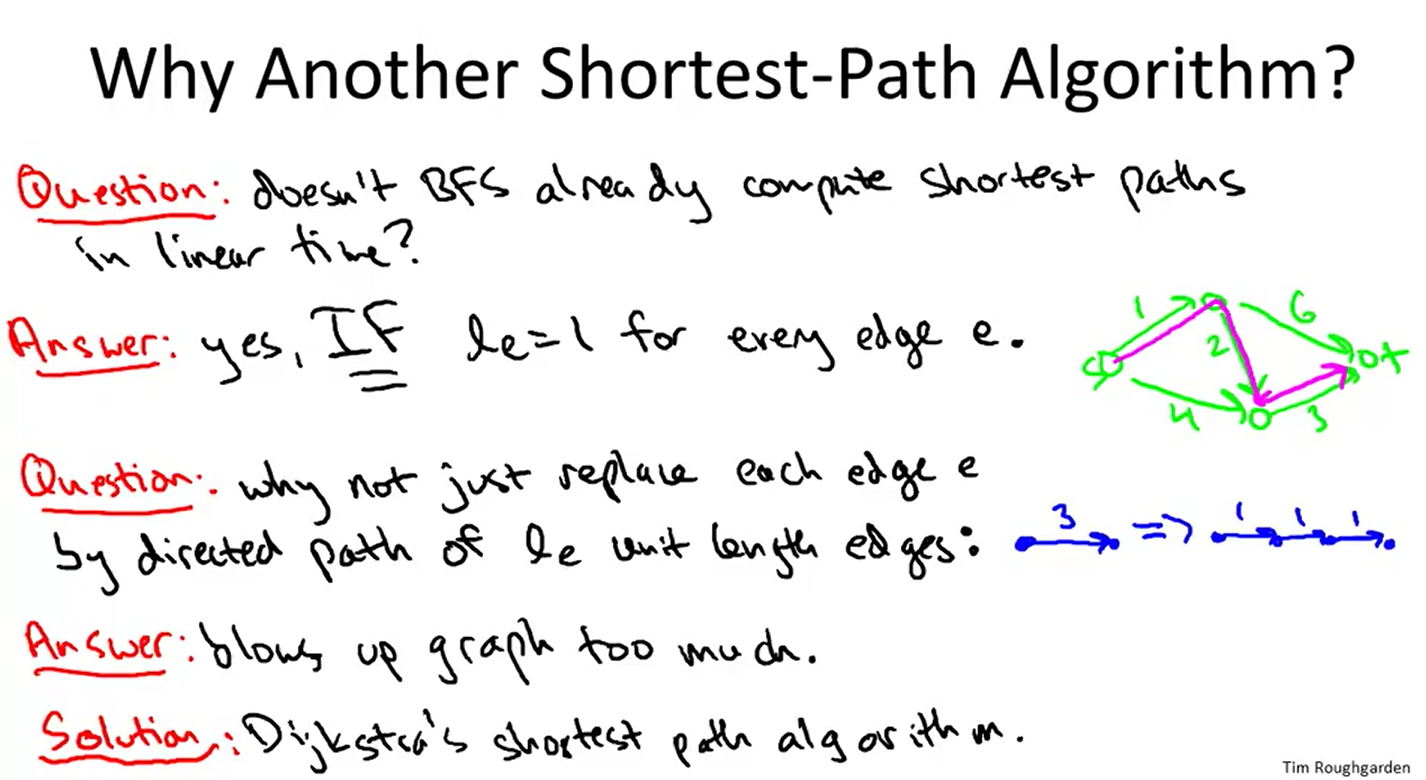 Why Another Shortest-Path Algorithm?
Question: doesn't BFS already compute shortest paths
in linear time?
Answer: yes, IF le=1 for every edge e.
1 6
2
s t
4 3
Question: why not just replace each edge e
by directed path of le unit length edges:
3 => 1 1 1
Answer: blows up graph too much.
Solution: Dijkstra's shortest path algorithm.
Tim Roughgarden